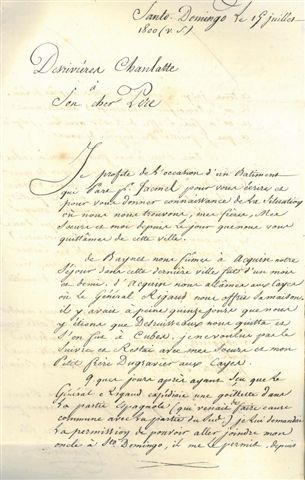 Santo-Domingo le 15 juillet
1800 (v. S)
Desrivières Chanlatte
à
Son cher Père
Je profite de l'occasion d'un Batiment
qui part pr. Jacmel pour vous écrire et
pour vous donner connaissance de la situation
où nous nous trouvons, mes frères, Mes
Sœurs et moi depuis le jour que nous vous
quittâmes de cette ville.
de Baynet nous fûmes à Acquin notre
Séjour dans cette dernière ville fut d'un mois
et demi. d'Acquin nous allâmes aux Cayes
où le Général Rigaud nous offrit sa maison.
il y avait à peine quinze jours que nous
y étions que Desruisseaux nous quitta et
S'en fut à Cuba. je ne voulus pas le
Suivre et Restai avec mes Sœurs et mon
Petit frère Dugravier aux Cayes.
9 jours après ayant Su que le
Général Rigaud expédiait une goëlette dans
la partie Espagnole (qui venait de faire cause
commune avec la partie du Sud) je lui demandai
la permission de pouvoir aller joindre mon
oncle à Sto Domingo, il me le permit. depuis